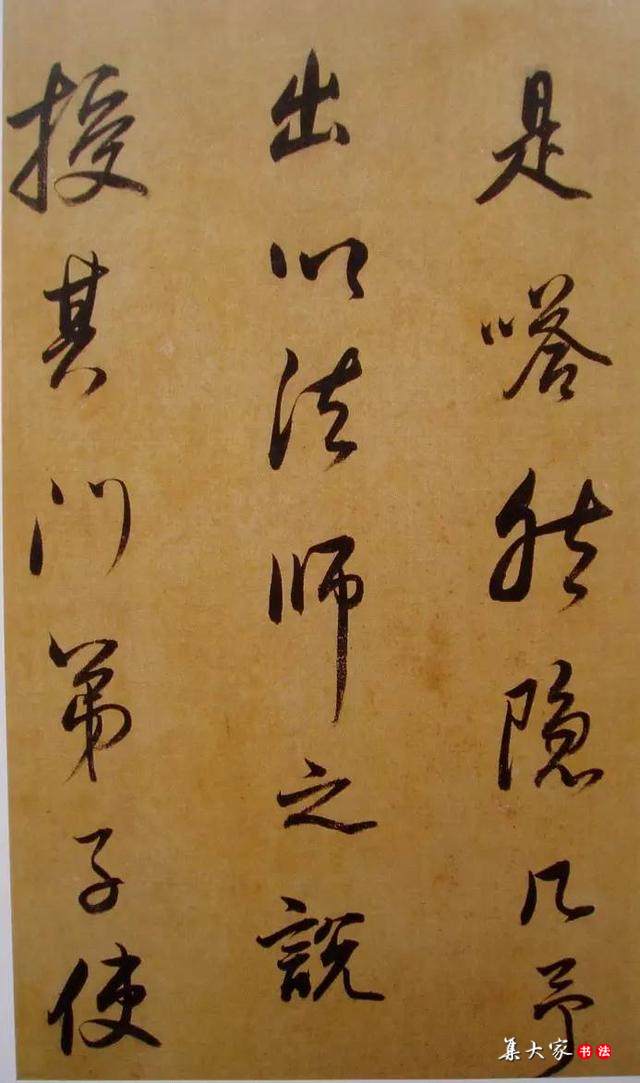 是嗒然隐几予
出以法师之説
授其门弟子使
集大家书法